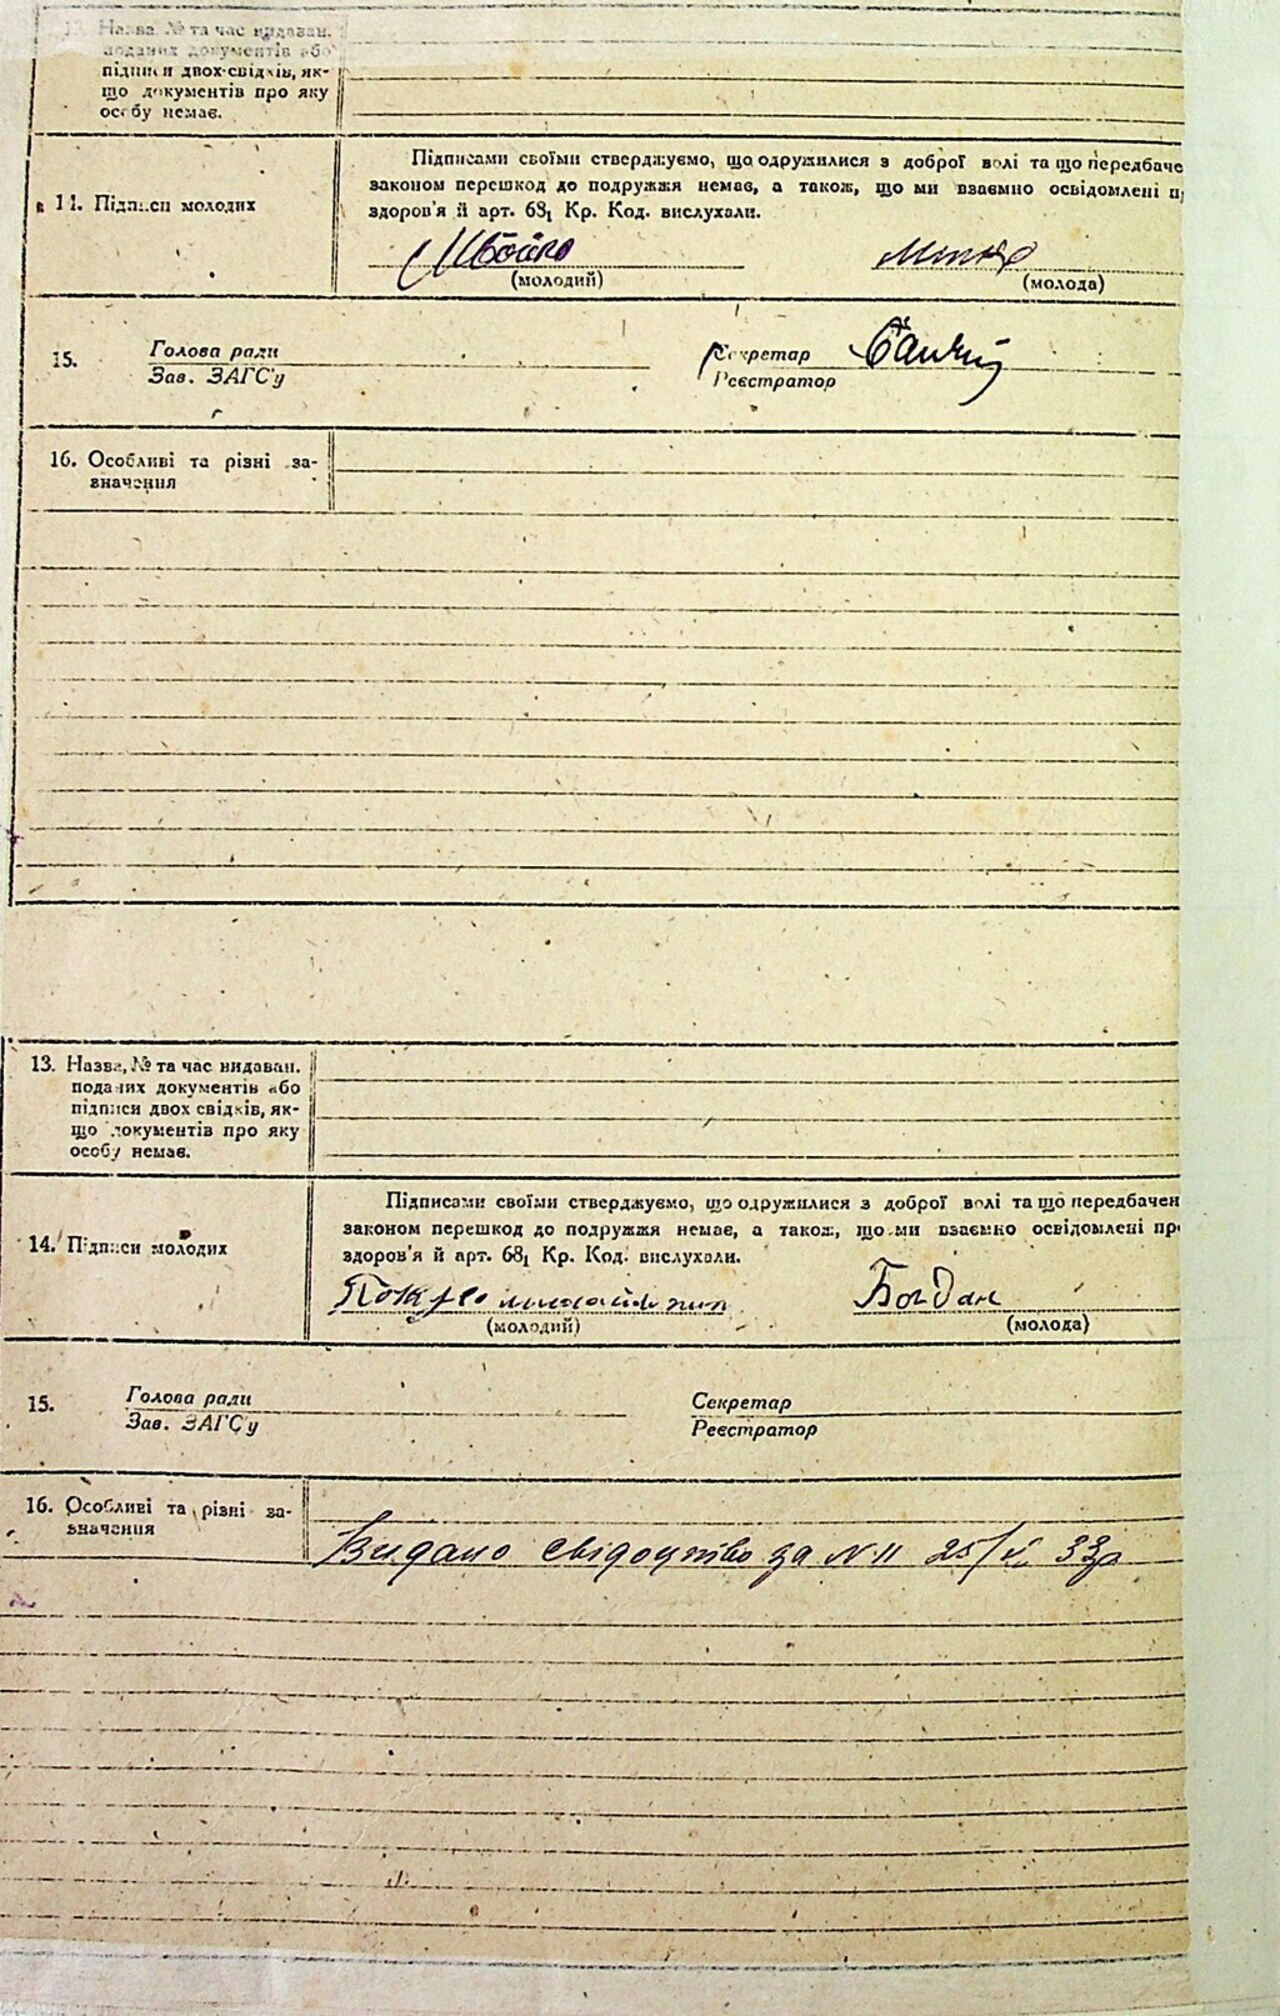 13. Назва, № та час видаван.
поданих документів або
підписи двох свідків, як-
що документів про яку
особу немає.
14. Підписи молодих
Підписами своїми стверджуємо, що одружилися з доброї волі та що передбаче
законом перешкод до подружжя немає, а також, що ми взаємно освідомлені п
здоров'я й арт. 68₁ Кр. Код. вислухали.
Бойко
(молодий) (молода)
15. Голова ради Секретар
Зав. ЗАГС'у Реєстратор
16. Особливі та різні за-
значення
13. Назва, № та час видаван.
поданих документів або
підписи двох свідків, як-
що документів про яку
особу немає.
14. Підписи молодих
Підписами своїми стверджуємо, що одружилися з доброї волі та що передбачен
законом перешкод до подружжя немає, а також, що ми взаємно освідомлені пр
здоров'я й арт. 68₁ Кр. Код. вислухали.
Богдан
(молодий) (молода)
15. Голова ради Секретар
Зав. ЗАГС'у Реєстратор
16. Особливі та різні за-
значення
Видано свідоцтво за N 11 25/ 33р